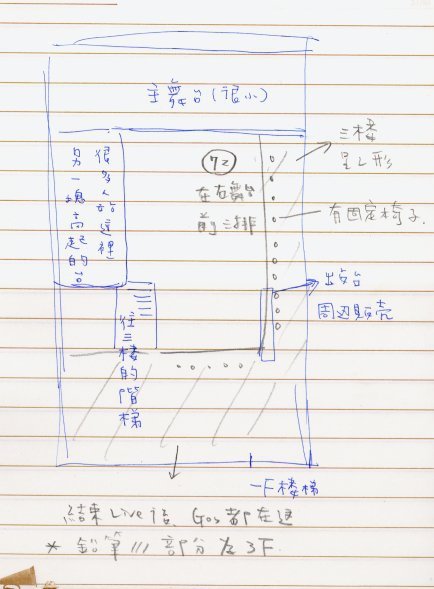 主舞台(很小)
很多人站這裡
另一塊高起的台
72
在右舞台
前三排
三楼
呈L形
有固定椅子.
出名台
周辺販売
往三樓的階梯
一F楼梯
結束Live後、Gos都在這
* 鉛筆/// 部分為3F.